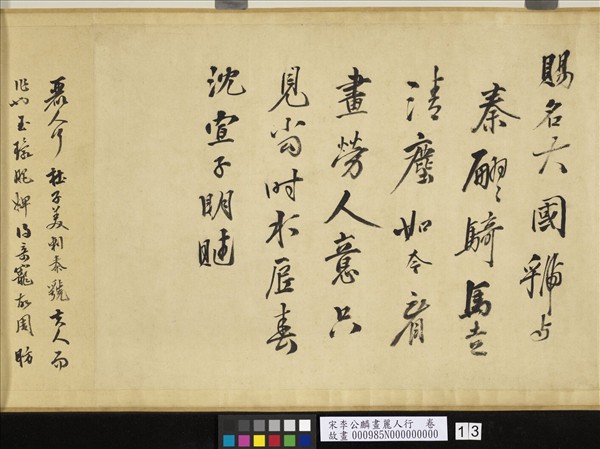 賜名大國虢与
秦翩〻騎馬走
清塵如今看
畫勞人意只
見當時水春
沈宣子明
麗人行杜子美刺秦虢夫人而
作也玉環得帝寵故周昉
宋李公麟畫麗人行 卷
故畫 000985N000000000
13